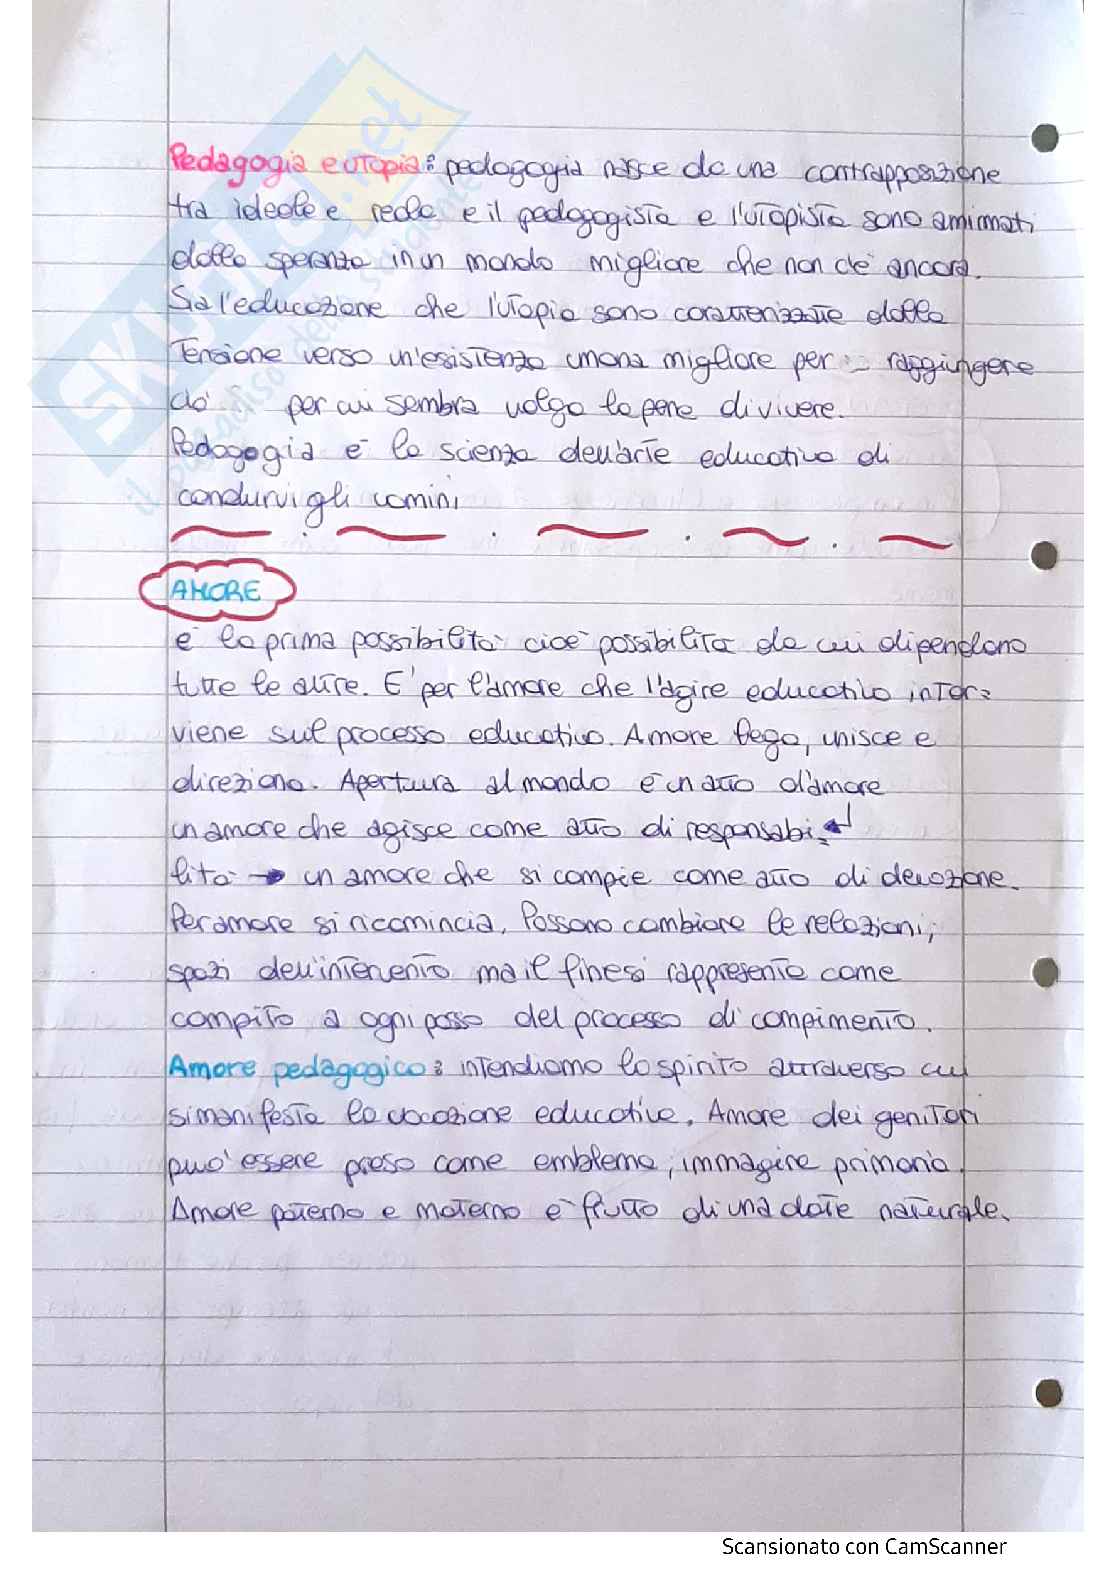 Pedagogia e utopia: pedagogia nasce da una contrapposizione
tra ideale e reale e il pedagogista e l'utopista sono amimati
dalla speranza in un mondo migliore che non c'è ancora.
Sia l'educazione che l'utopia sono caratterizzate dalla
Tensione verso un'esistenza umana migliore per raggiungere
ciò per cui sembra valga la pena di vivere.
Pedagogia è la scienza dell'arte educativa di
condurvi gli uomini
AMORE
è la prima possibilità cioè possibilità da cui dipendono
tutte le altre. E' per l'amore che l'agire educativo inter=
viene sul processo educativo. Amore lega, unisce e
direziona. Apertura al mondo è un atto d'amore
un amore che agisce come atto di responsabi=
lità → un amore che si compie come atto di devozione.
Per amore si ricomincia. Possono cambiare le relazioni;
spazi dell'intervento ma il fine si rappresenta come
compito a ogni passo del processo di compimento.
Amore pedagogico: intendiamo lo spirito attraverso cui
si manifesta la vocazione educativa. Amore dei genitori
può essere preso come emblema, immagine primaria.
Amore paterno e materno è frutto di una dote naturale.
SKUOLA.net
il paradiso dello studente
Scansionato con CamScanner